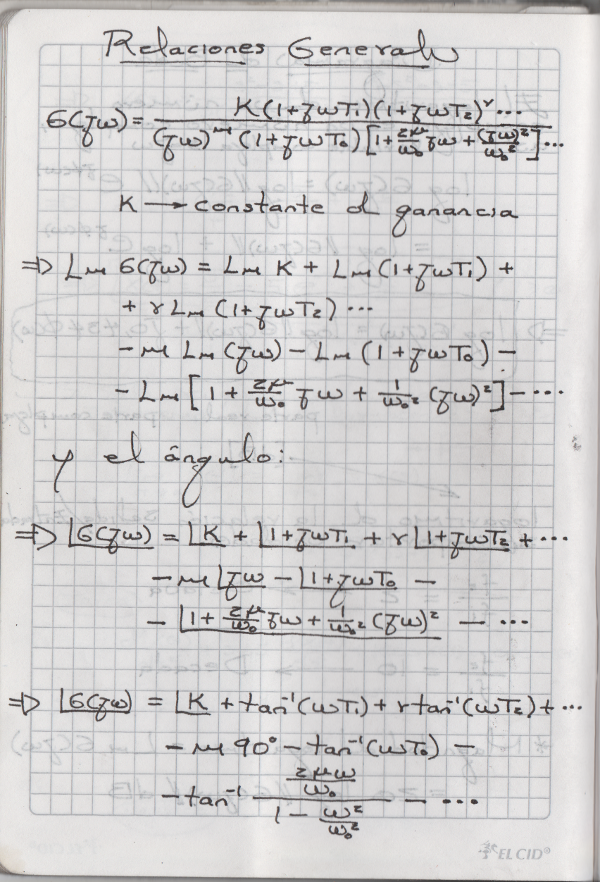 Relaciones Generales
G(jω) = K(1+jωT₁)(1+jωT₂)^r ... / (jω)^m (1+jωT₀)[1+ 2μ/ω₀ jω + (jω)²/ω₀²]...
K → constante d ganancia
⇒ Lm G(jω) = Lm K + Lm (1+jωT₁) +
+ r Lm (1+jωT₂) ...
- m Lm (jω) - Lm (1+jωT₀) -
- Lm [1 + 2μ/ω₀ jω + 1/ω₀² (jω)²] - ...
y el ángulo:
⇒ ∠G(jω) = ∠K + ∠1+jωT₁ + r ∠1+jωT₂ + ...
- m ∠jω - ∠1+jωT₀ -
- ∠1 + 2μ/ω₀ jω + 1/ω₀² (jω)² - ...
⇒ ∠G(jω) = ∠K + tan⁻¹(ωT₁) + r tan⁻¹(ωT₂) + ...
- m 90° - tan⁻¹(ωT₀) -
- tan⁻¹ (2μω/ω₀) / (1 - ω²/ω₀²) - ...
EL CID®